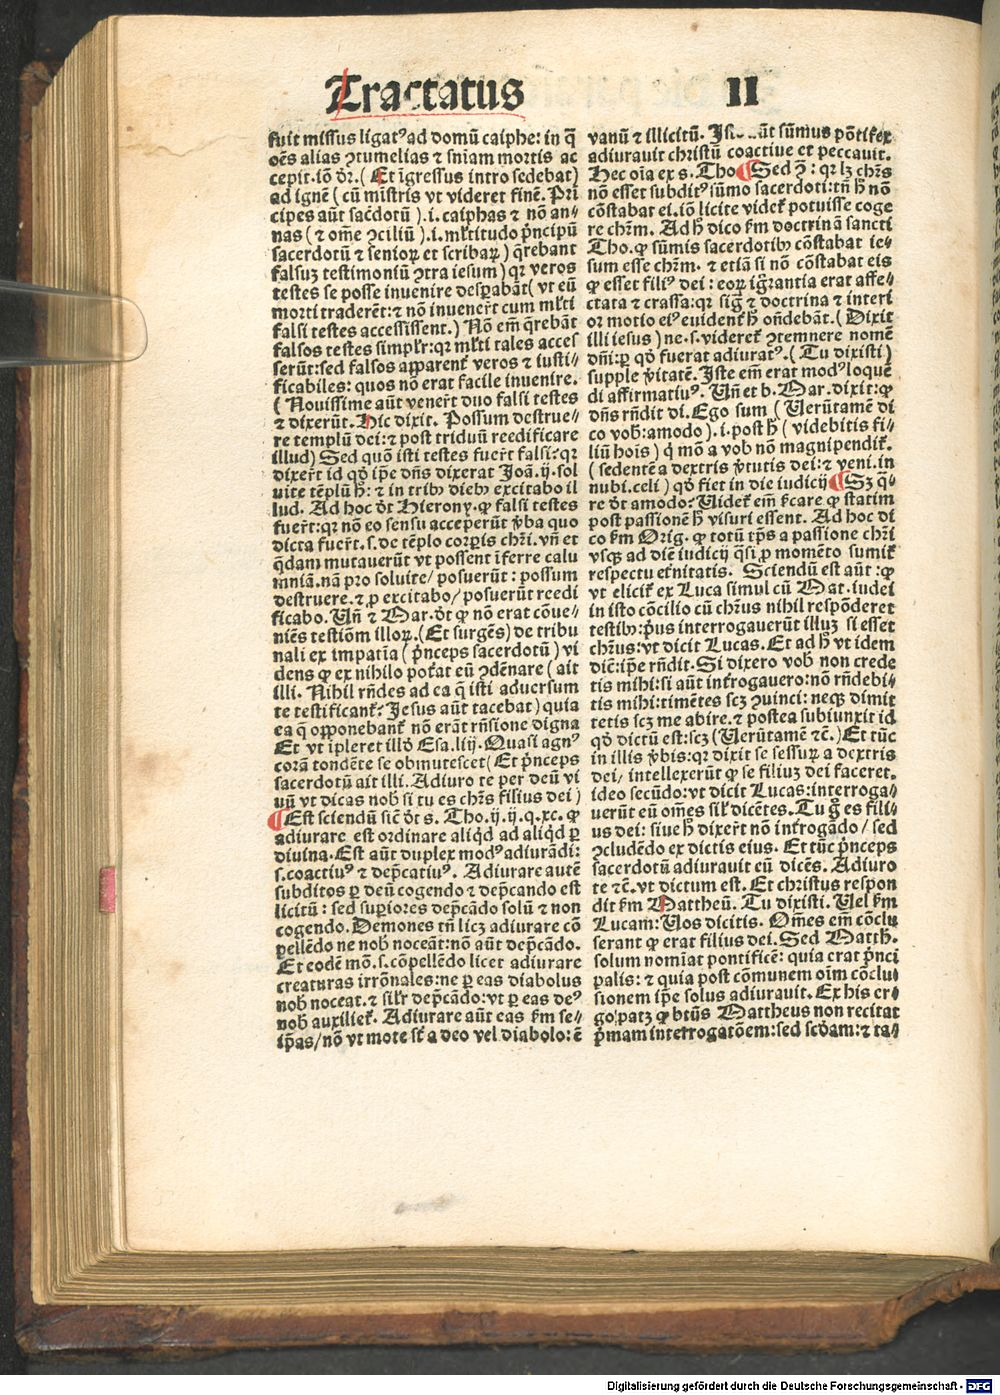 Tractatus II
fuit missus ligatꝰ ad domū caiphe: in q̄
oēs alias ꝯtumelias ⁊ sn̄iam mortis ac
cepit. iō dr̄. (Et īgressus intro sedebat)
ad ignē (cū mīstris vt videret finē. Prī
cipes aūt sac̄dotū).i. caiphas ⁊ nō an-
nas (⁊ om̄e ꝯciliū).i. ml̄titudo p̄ncipū
sacerdotū ⁊ senioꝝ et scribaꝝ) q̄rebant
falsuꝫ testimoniū ꝯtra iesum) qꝛ veros
testes se posse inuenire desꝑabāt (vt eū
morti traderēt: ⁊ nō inuener̄t cum ml̄ti
falsi testes accessissent.) Nō em̄ q̄rebāt
falsos testes simplr̄: qꝛ ml̄ti tales acces
serūt: sed falsos apparent̄ veros ⁊ iusti-
ficabiles: quos nō erat facile inuenire.
(Nouissime aūt vener̄t duo falsi testes
⁊ dixerūt. Hic dixit. Possum destrue-
re templū dei: ⁊ post triduū reedificare
illud) Sed quō isti testes fuer̄t falsi? qꝛ
dixer̄t id qd̄ ip̄e dn̄s dixerat Joā. ij. sol
uite tēplū h̄: ⁊ in tribꝰ diebꝰ excitabo il
lud. Ad hoc dr̄t Hierony. ꝙ falsi testes
fuer̄t: qꝛ nō eo sensu acceperūt v̄ba quo
dicta fuer̄t. s. de tēplo corꝑis chr̄i. vn̄ et
q̄dam mutauerūt vt possent īferre calu
mniā. nā pro soluite/ posuerūt: possum
destruere. ⁊ ꝓ excitabo/ posuerūt reedi
ficabo. Vn̄ ⁊ Mar. dr̄t ꝙ nō erat cōue-
niēs testiōm illoꝝ. (Et surgēs) de tribu
nali ex impatīa (p̄nceps sacerdotū) vi
dens ꝙ ex nihilo pot̄at eū ꝯdēnare (ait
illi. Nihil rn̄des ad ea q̄ isti aduersum
te testificant̄? Jesus aūt tacebat) quia
ea q̄ opponebant̄ nō erāt rn̄sione digna
Et vt īpleret illd̄ Esa. liij. Quasi agnꝰ
corā tondēte se obmutescet (Et p̄nceps
sacerdotū ait illi. Adiuro te per deū vi
uū vt dicas nob̄ si tu es chr̄s filius dei)
¶ Est sciendū sic̄ dr̄t s. Tho. ij. ij. q. xc. ꝙ
adiurare est ordinare aliq̄d ad aliq̄d ꝑ
diuina. Est aūt duplex modꝰ adiurādi:
s. coactiuꝰ ⁊ dep̄catiuꝰ. Adiurare autē
subditos ꝑ deū cogendo ⁊ dep̄cando est
licitū: sed suꝑiores dep̄cādo solū ⁊ non
cogendo. Demones tn̄ licꝫ adiurare cō
pellēdo ne nob̄ noceāt: nō aūt dep̄cādo.
Et eodē mō. s. cōpellēdo licet adiurare
creaturas irrōnales: ne ꝑ eas diabolus
nob̄ noceat. ⁊ silr̄ dep̄cādo: vt ꝑ eas deꝰ
nob̄ auxiliet̄. Adiurare aūt eas ẜm se-
ip̄as/ nō vt mote sūt a deo vel diabolo: ē
vanū ⁊ illicitū. aūt sūmus pōtifex
adiurauit christū coactiue et peccauit.
Hec oīa ex s. Tho ¶ Sed ꝯ̄: qꝛ lꝫ chr̄s
nō esset subditꝰ sūmo sacerdoti: tn̄ h̄ nō
cōstabat ei. iō licite videt̄ potuisse coge
re chr̄m. Ad h̄ dico ẜm doctrinā sancti
Tho. ꝙ sūmis sacerdotibꝰ cōstabat ie-
sum esse chr̄m. ⁊ etiā si nō cōstabat eis
ꝙ esset filiꝰ dei: eoꝝ igr̄antia erat affe-
ctata ⁊ crassa: qꝛ siḡ ⁊ doctrina ⁊ interi
or motio eiꝰ euident̄ h̄ on̄debāt. (Dixit
illi iesus) ne. s. videret̄ ꝯtemnere nomē
dn̄i: ꝑ qd̄ fuerat adiuratꝰ. (Tu dixisti)
supple v̄itatē. Iste em̄ erat modꝰ loquē
di affirmatiuꝰ. Vn̄ et b. Mar. dixit: ꝙ
dn̄s rn̄dit di. Ego sum (Verūtamē di
co vob̄: amodo).i. post h̄ (videbitis fi-
liū hoīs) q̄ mō a vob̄ nō magnipendit̄.
(sedentē a dextris v̄tutis dei: ⁊ veni. in
nubi. celi) qd̄ fiet in die iudicij ¶ Sꝫ q̄-
re dr̄t amodo? Videt̄ em̄ ẜcare ꝙ statim
post passionē h̄ visuri essent. Ad hoc di
co ẜm Orig. ꝙ totū tp̄s a passione chr̄i
vsqꝫ ad diē iudicij q̄si ꝓ momēto sumit̄
respectu et̄nitatis. Sciendū est aūt: ꝙ
vt elicit̄ ex Luca simul cū Mat. iudei
in isto cōcilio cū chr̄us nihil respōderet
testibꝰ: p̄us interrogauerūt illuꝫ si esset
chr̄us: vt dicit Lucas. Et ad h̄ vt idem
diē: ip̄e rn̄dit. Si dixero vob̄ non crede
tis mihi: si aūt int̄rogauero: nō rn̄debi-
tis mihi: timētes scꝫ ꝯuinci: neqꝫ dimit
tetis scꝫ me abire. ⁊ postea subiunxit id
qd̄ dictū est: scꝫ (Verūtamē ⁊c̄.) Et tūc
in illis v̄bis: qꝛ dixit se sessuꝝ a dextris
dei/ intellexerūt ꝙ se filiuꝫ dei faceret.
ideo secūdo: vt dicit Lucas: interroga-
uerūt eū om̄es sil̄ dicētes. Tu g̊ es fili-
us dei: siue h̄ dixer̄t nō int̄rogādo/ sed
ꝯcludēdo ex dictis eius. Et tūc p̄nceps
sacerdotū adiurauit eū dicēs. Adiuro
te ⁊c̄. vt dictum est. Et christus respon
dit ẜm Mattheū. Tu dixisti. Vel ẜm
Lucam: Vos dicitis. Om̄es em̄ cōclu
serant ꝙ erat filius dei. Sed Matth.
solum nomīat pontificē: quia erat p̄nci
palis: ⁊ quia post cōmunem oīm cōclu
sionem ip̄e solus adiurauit. Ex his er-
go patꝫ ꝙ btūs Mattheus non recitat
p̄mam interrogatōem: sed scd̄am: ⁊ ta-
Digitalisierung gefördert durch die Deutsche Forschungsgemeinschaft - DFG